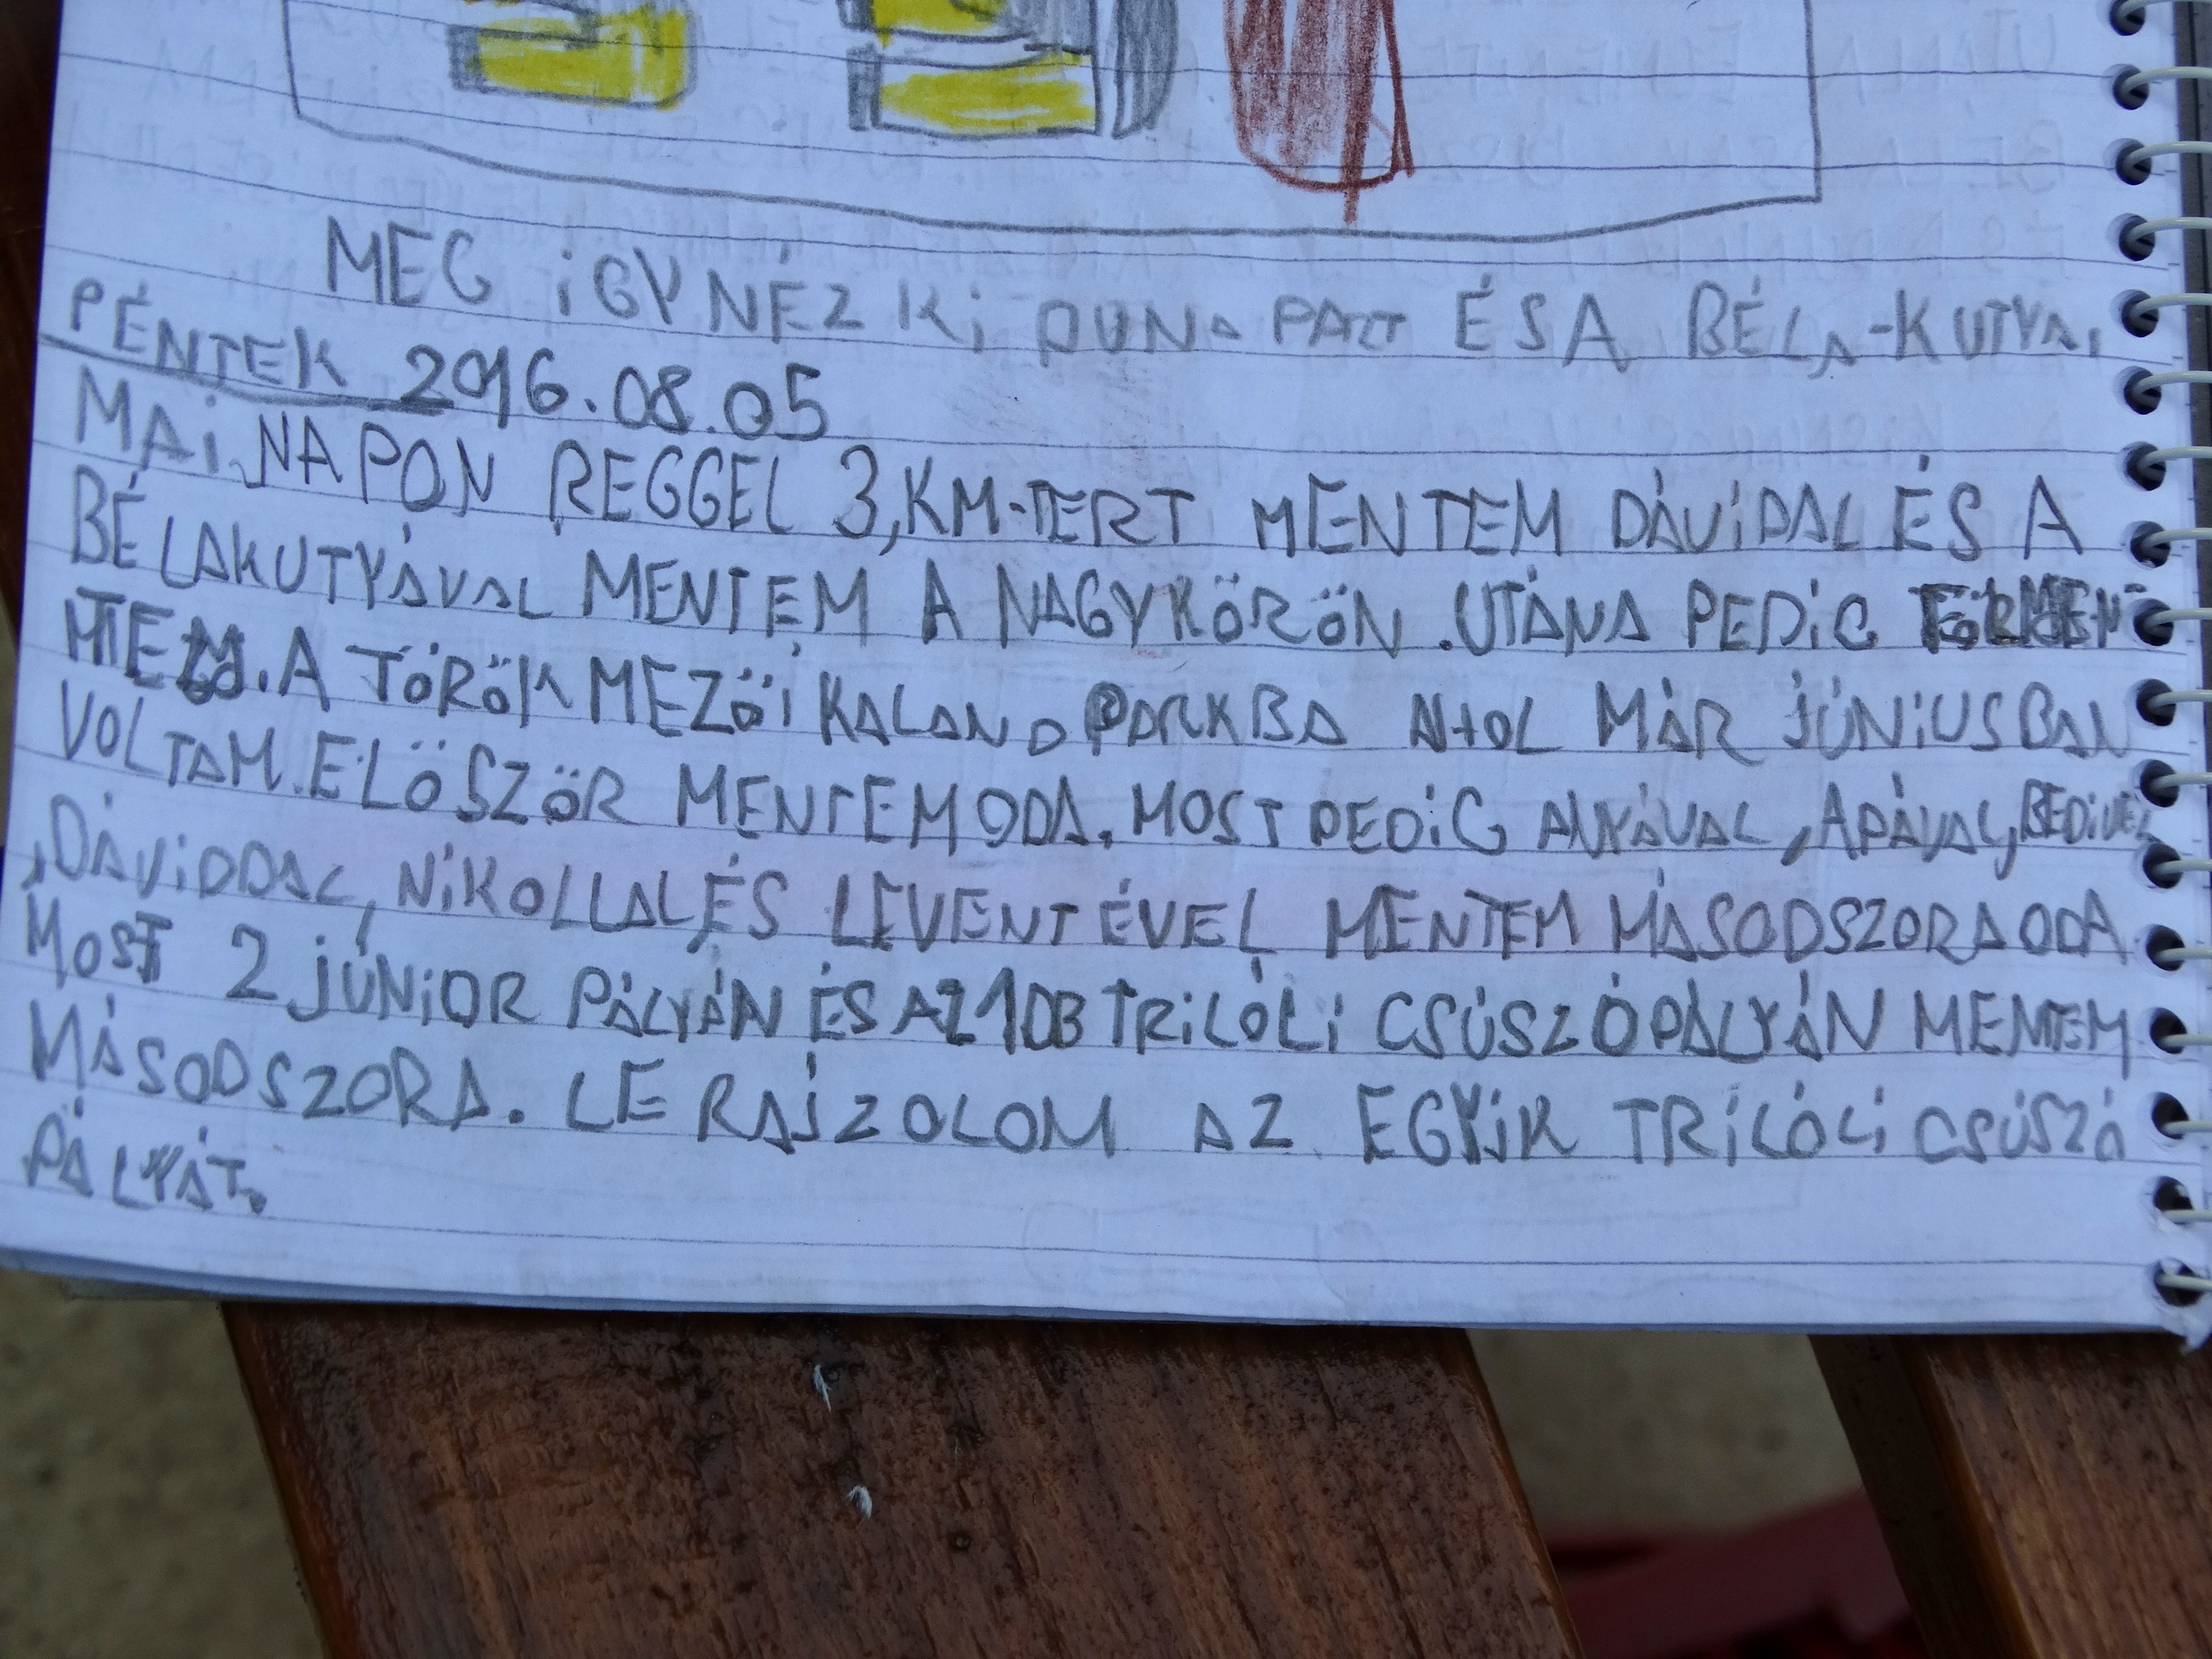 MEG iGY NÉZ Ki DUNA PART ÉS A BÉLA-KUTYA.
PÉNTEK 2016.08.05
MAi NAPON REGGEL 3,KM-TERT MENTEM DÁViDAL ÉS A
BÉLAKUTYÁVAL MENTEM A NAGYKÖRÖN. UTÁNA PEDiG
MTEM. A TÖRÖK MEZÖi KALAND PARKBA AHOL MÁR JÚNiUSBAN
VOLTAM. ELÖSZÖR MENTEM ODA. MOST PEDiG ANYÁVAL, APÁVAL, BEDiVEL
,DÁViDDAL, NiKOLLAL ÉS LEVENTÉVEL MENTEM MÁSODSZORA ODA
MOST 2 JÚNiOR PÁLYÁN ÉS AZ 1 DB TRiLÓLi CSÚSZÓPÁLYÁN MENTEM
MÁSODSZORA. LE RAJZOLOM AZ EGYiK TRiLÓLi CSÚSZÓ
PÁLYÁT.